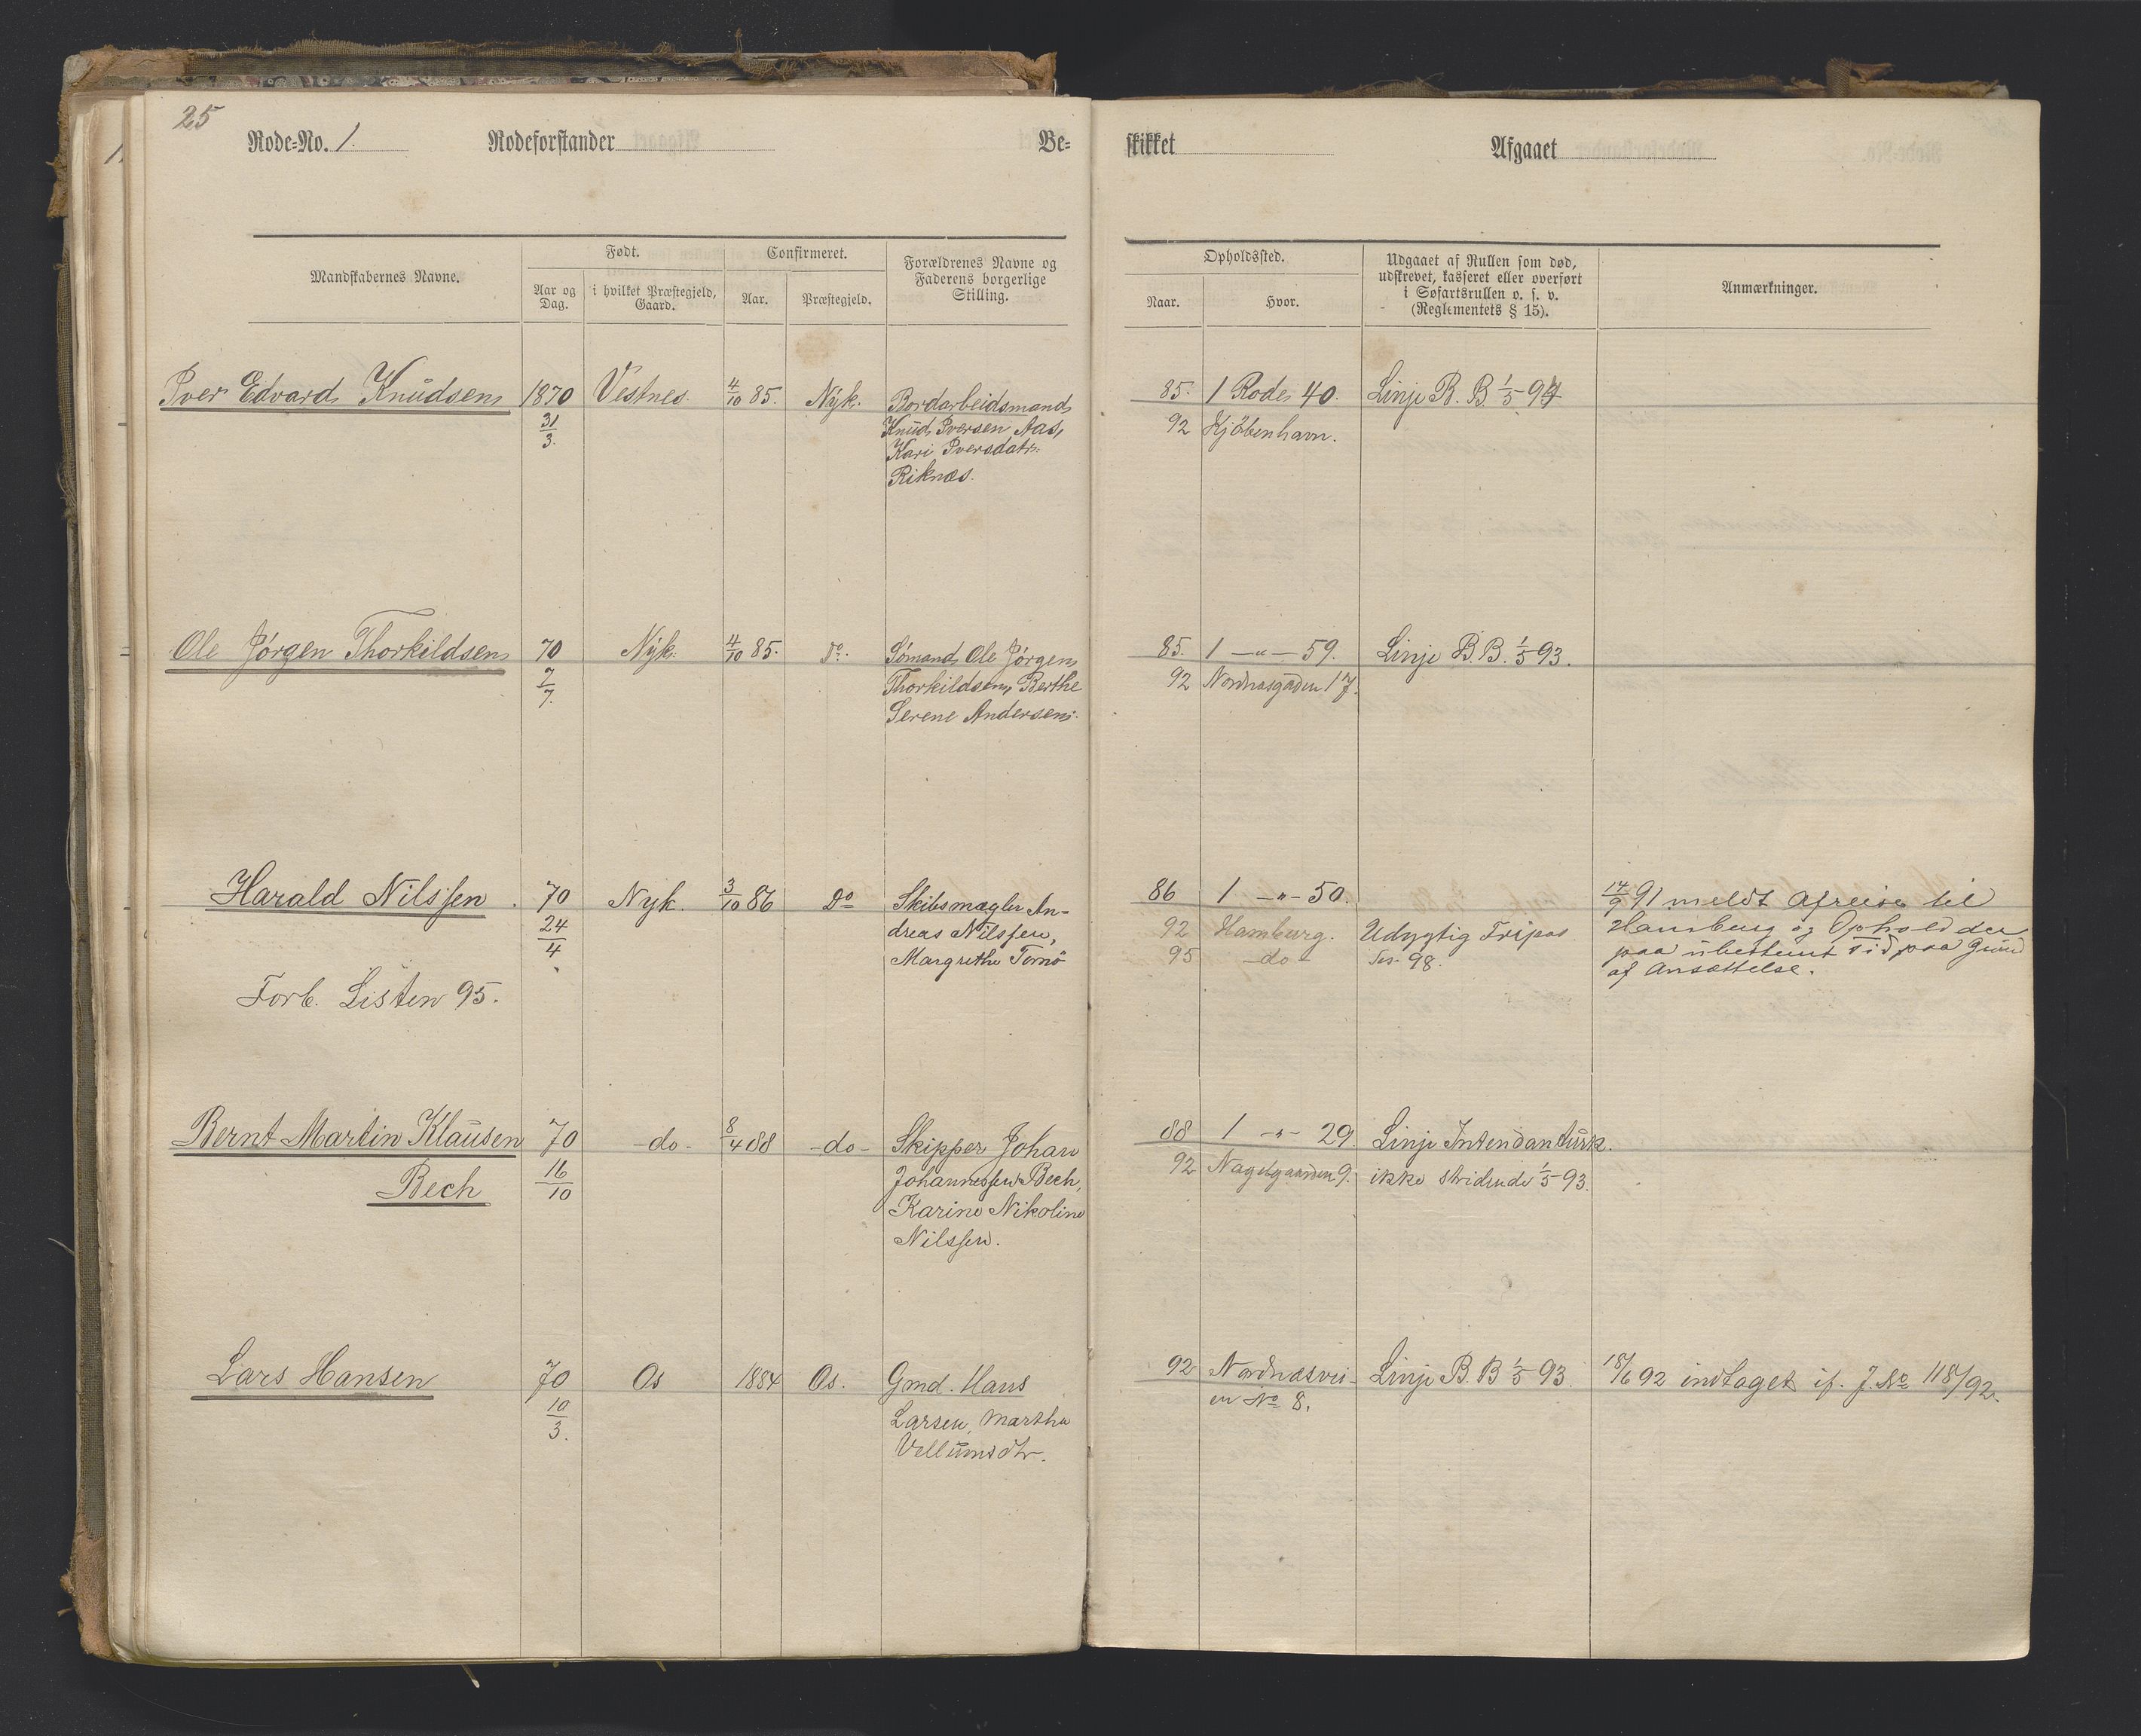 25
Rode-No. 1. Rodeforstander Be-
skikket Afgaaet
Mandskabernes Navne. Født. Confirmeret. Forældrenes Navne og Faderens borgerlige Stilling.
Aar og Dag. i hvilket Præstegjeld, Gaard. Aar. Præstegjeld.
Opholdssted. Udgaaet af Rullen som død, udskrevet, kasseret eller overført i Søfartsrullen o. s. v. (Reglementets § 15). Anmærkninger.
Naar. Hvor.
Iver Edvard Knudsen 1870 Vestnes. 4/10 85. Nyk. Bordarbeidsmand
31/3. Knud Iversen Aas,
Kari Iversdatr:
Riknæs.
85. 1 Rode 40. Linje B. B 1/5 94
92 Kjöbenhavn.
Ole Jörgen Thorkildsen 70 Nyk. 4/10 85. Do. Sömand Ole Jörgen
7/7. Thorkildsen, Berthe
Serene Andersen.
85. 1 -"- 59. Linje B.B. 1/5 93.
92 Nordnæsgaden 17.
Harald Nilssen. 70 Nyk. 3/10 86 Do Skibsmægler An-
24/4 dreas Nilssen,
Margrethe
Forb. Listen 95.
86 1 -"- 50. 14/9 91 meldt Afreise til
92 Hamburg. Udygtig Tripos Hamburg og Ophold der
95 -do- Ses. 98. paa ubestemt Tid paa Grund
af Ansættelse.
Bernt Martin Klausen 70 -do- 8/4 88 -do- Skipper Johan
Bech 16/10 Johannessen Bech,
Karine Nikoline
Nilssen.
88 1 -"- 29. Linje Intendanturk.
92 Nagelgaarden 9. ikke stridende 1/5 93.
Lars Hansen 70 Os 1884 Os. Gmd. Hans
10/3. Larsen, Martha
Vellumsdtr.
92 Nordnæsvei- Linje B. B 1/5 93. 18/6 92 indtaget if. J. No 118/92.
en No 8.